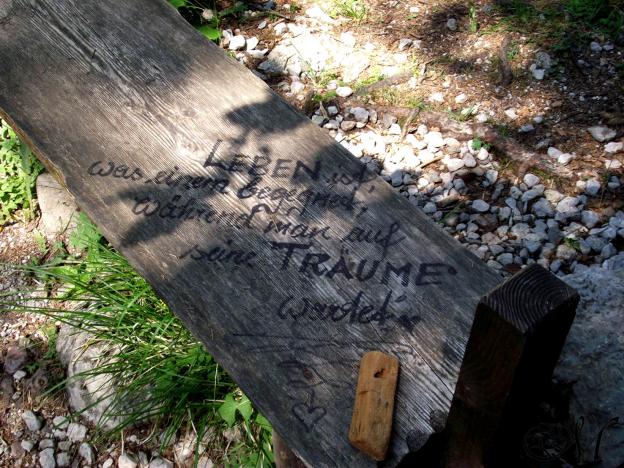 LEBEN ist,
was einem begegnet,
während man auf
seine TRÄUME
wartet!